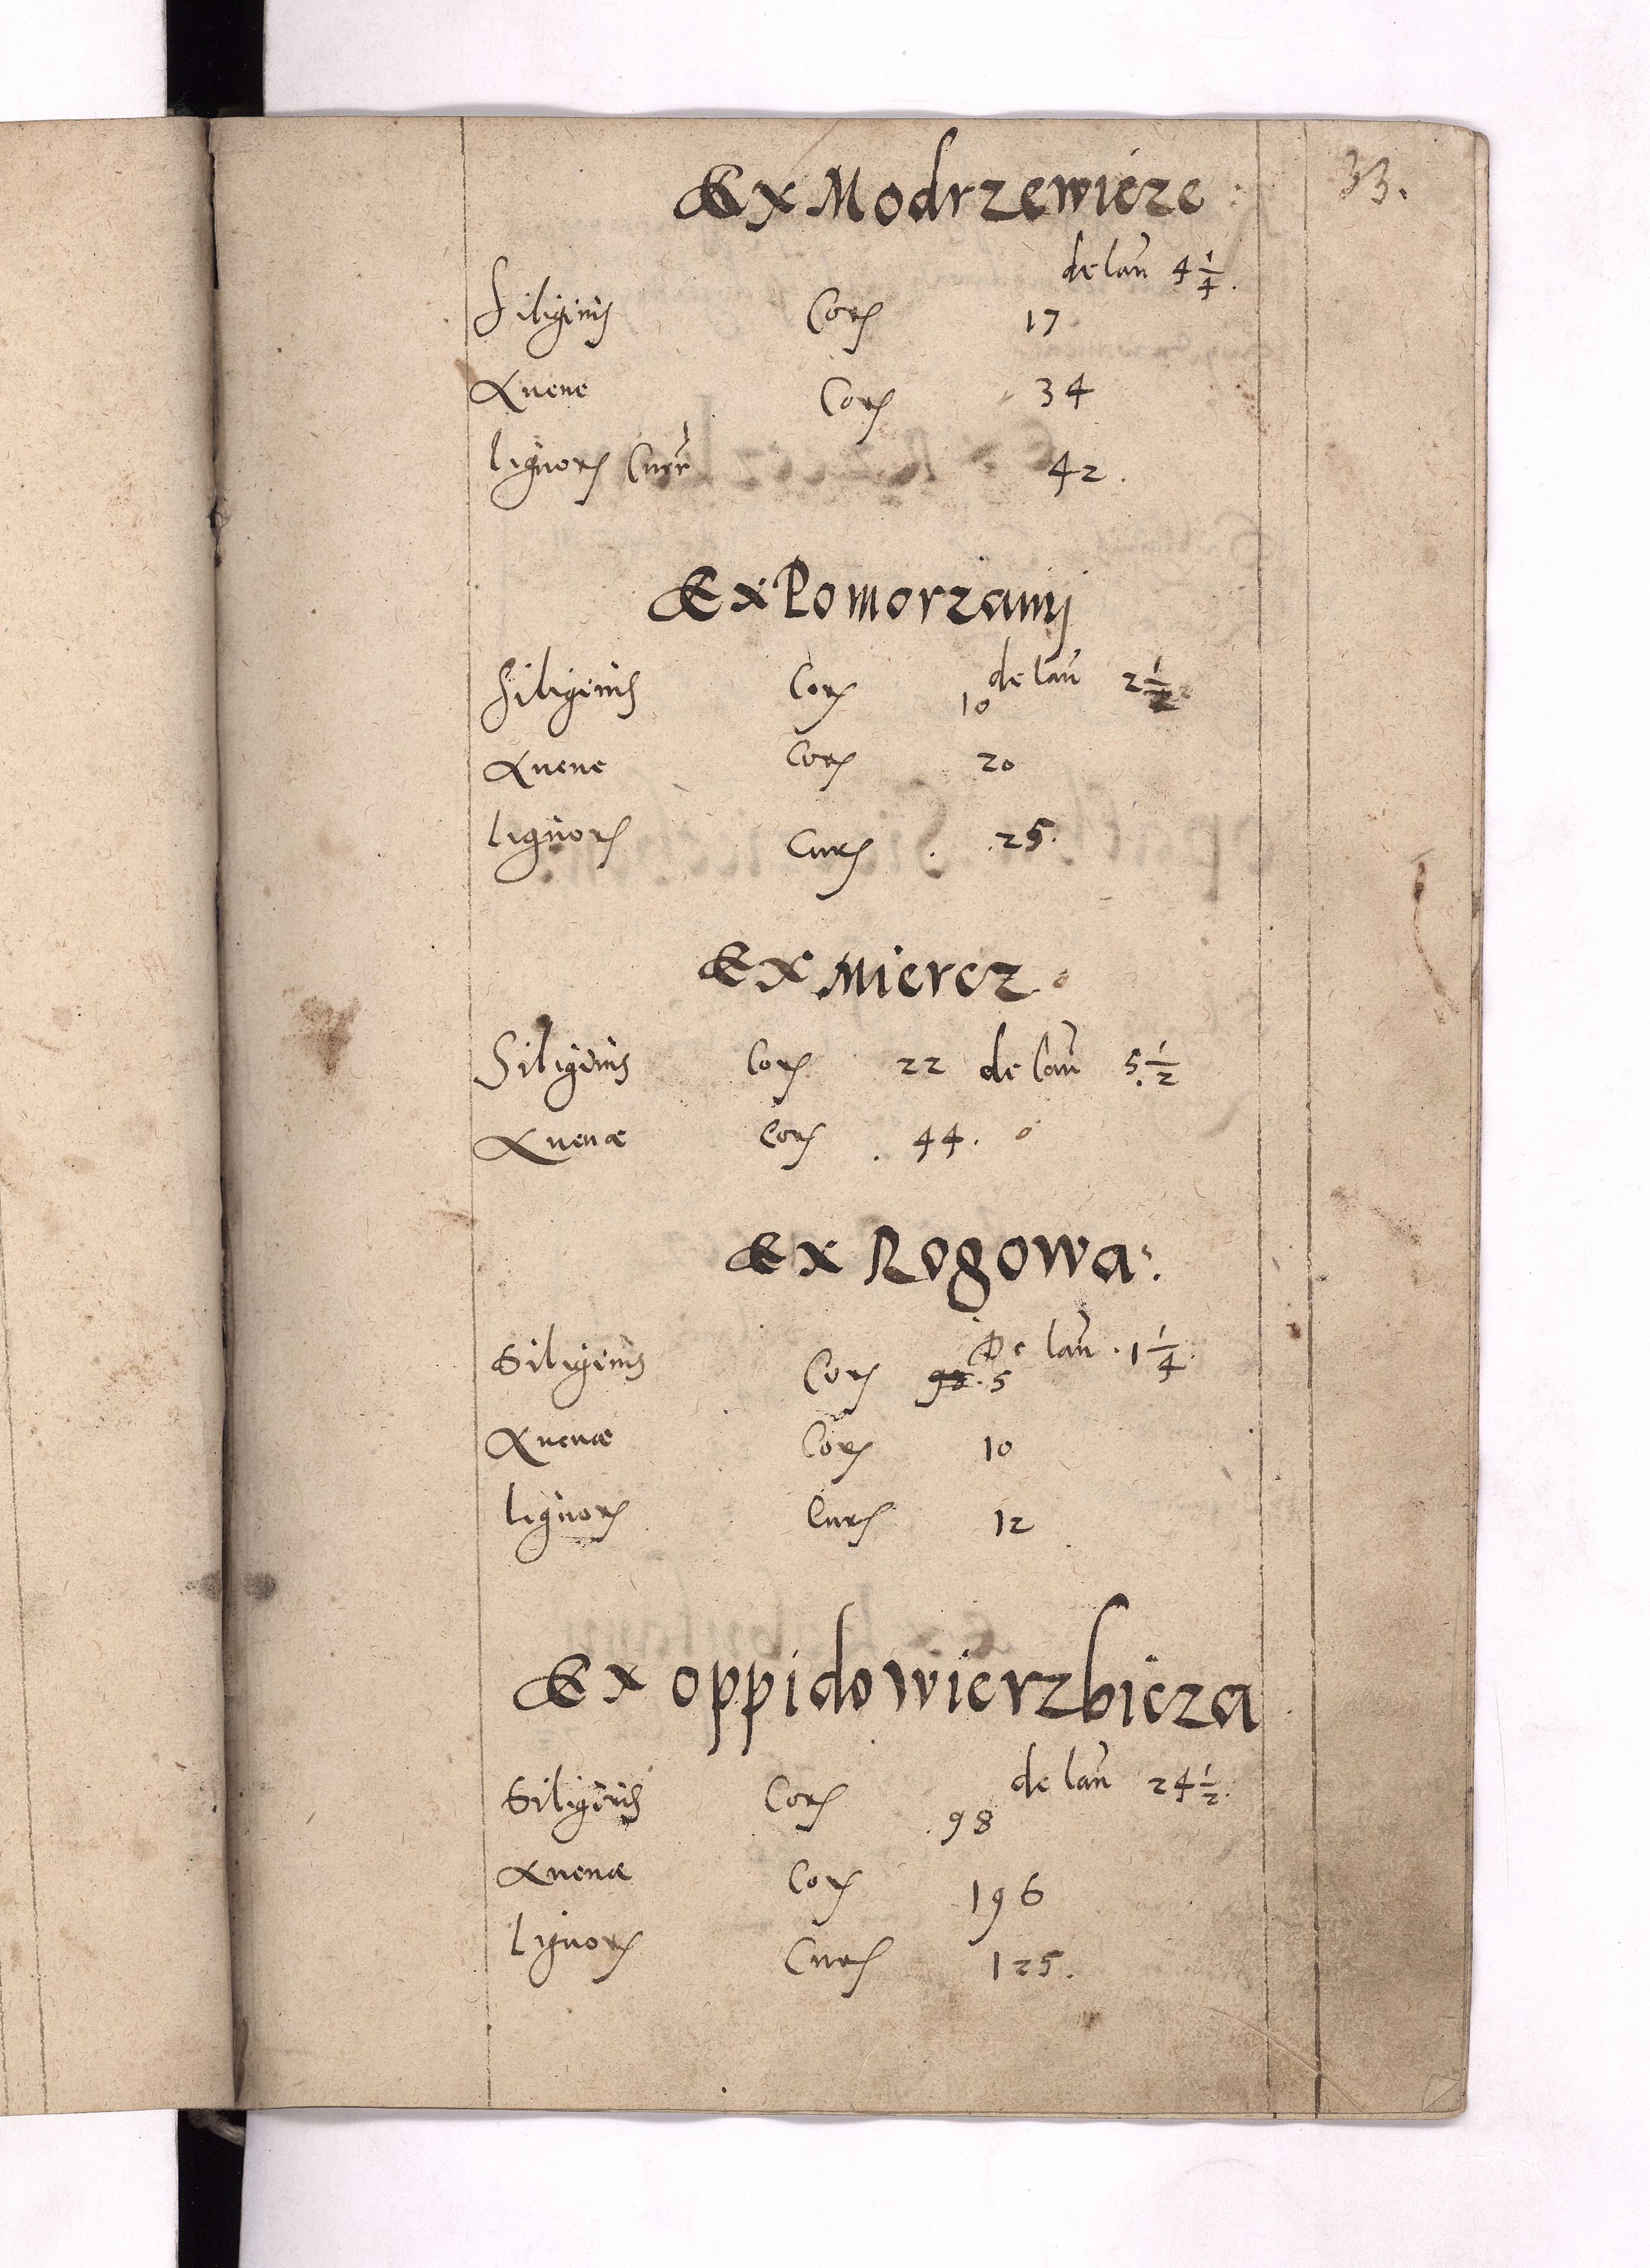 33.
Ex Modrzewicze
de lan̄ 4 1/4.
Siliginis Corꝝ 17
Avene Corꝝ 34
Lignorꝝ Curr̄ 42.
Ex Pomorzanij
Siliginis Corꝝ 10 de lan̄ 2 1/2
Avene Corꝝ 20
Lignorꝝ Curꝝ 25.
Ex Miercz
Siliginis Corꝝ 22 de lan̄ 5 1/2
Avenæ Corꝝ 44.
Ex Rogowa.
De lan̄ 1 1/4.
Siliginis Corꝝ 98. 5
Avenæ Corꝝ 10
Lignorꝝ Curꝝ 12
Ex oppido Wierzbicza
de lan̄ 24 1/2.
Siliginis Corꝝ 98
Avenæ Corꝝ 196
Lignorꝝ Curꝝ 125.